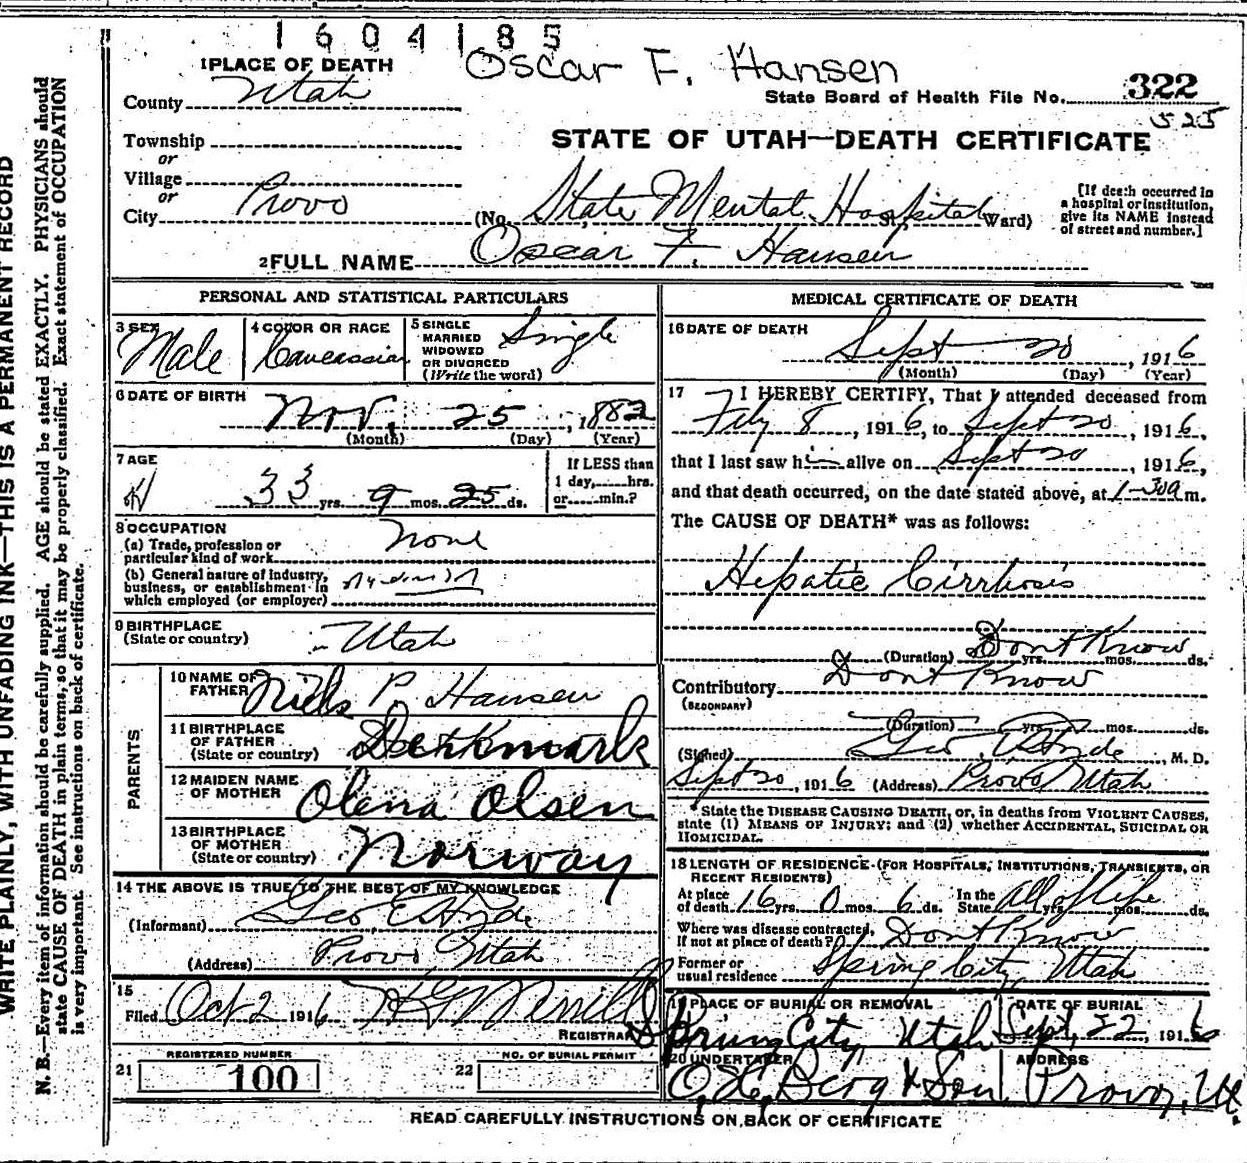 1604185
Oscar F. Hansen
1 PLACE OF DEATH
County Utah
State Board of Health File No. 322
525
Township
or
STATE OF UTAH—DEATH CERTIFICATE
Village
or
City Provo (No. State Mental Hospital St., Ward)
[If death occurred in
a hospital or institution,
give its NAME instead
of street and number.]
2 FULL NAME Oscar F. Hansen
PERSONAL AND STATISTICAL PARTICULARS
3 SEX Male
4 COLOR OR RACE Caucassian
5 SINGLE
MARRIED
WIDOWED
OR DIVORCED
(Write the word)
Single
6 DATE OF BIRTH
Nov. 25, 1882
(Month) (Day) (Year)
7 AGE
33 yrs. 9 mos. 25 ds.
If LESS than
1 day, hrs.
or min.?
8 OCCUPATION
(a) Trade, profession or
particular kind of work None
(b) General nature of industry,
business, or establishment in
which employed (or employer)
9 BIRTHPLACE
(State or country) Utah
PARENTS
10 NAME OF
FATHER Niels P. Hansen
11 BIRTHPLACE
OF FATHER
(State or country) Denkmark
12 MAIDEN NAME
OF MOTHER Olena Olsen
13 BIRTHPLACE
OF MOTHER
(State or country) Norway
14 THE ABOVE IS TRUE TO THE BEST OF MY KNOWLEDGE
(Informant) Geo E Hyde
(Address) Provo Utah
15
Filed Oct 2 1916 Merrill
REGISTRAR
REGISTERED NUMBER
21 100
NO. OF BURIAL PERMIT
22
MEDICAL CERTIFICATE OF DEATH
16 DATE OF DEATH
Sept 20, 1916
(Month) (Day) (Year)
17 I HEREBY CERTIFY, That I attended deceased from
8, 1916, to Sept 20, 1916,
that I last saw him alive on Sept 20, 1916,
and that death occurred, on the date stated above, at 1-30a m.
The CAUSE OF DEATH* was as follows:
Hepatic Cirrhosis
(Duration) Dont Know yrs. mos. ds.
Contributory Dont Know
(SECONDARY)
(Duration) yrs. mos. ds.
(Signed) Geo. E Hyde, M. D.
Sept 20, 1916 (Address) Provo Utah
*State the DISEASE CAUSING DEATH, or, in deaths from VIOLENT CAUSES,
state (1) MEANS OF INJURY; and (2) whether ACCIDENTAL, SUICIDAL OR
HOMICIDAL.
18 LENGTH OF RESIDENCE (FOR HOSPITALS, INSTITUTIONS, TRANSIENTS, OR
RECENT RESIDENTS)
At place
of death 16 yrs. 0 mos. 6 ds.
In the
State All of life yrs. mos. ds.
Where was disease contracted,
if not at place of death? Dont Know
Former or
usual residence Spring City Utah
19 PLACE OF BURIAL OR REMOVAL
Spring City Utah
DATE OF BURIAL
Sept, 22, 1916
20 UNDERTAKER
Berg & Son
ADDRESS
Provo, Ut.
READ CAREFULLY INSTRUCTIONS ON BACK OF CERTIFICATE
WRITE PLAINLY, WITH UNFADING INK—THIS IS A PERMANENT RECORD
N. B.—Every item of information should be carefully supplied. AGE should be stated EXACTLY. PHYSICIANS should
state CAUSE OF DEATH in plain terms, so that it may be properly classified. Exact statement of OCCUPATION
is very important. See instructions on back of certificate.